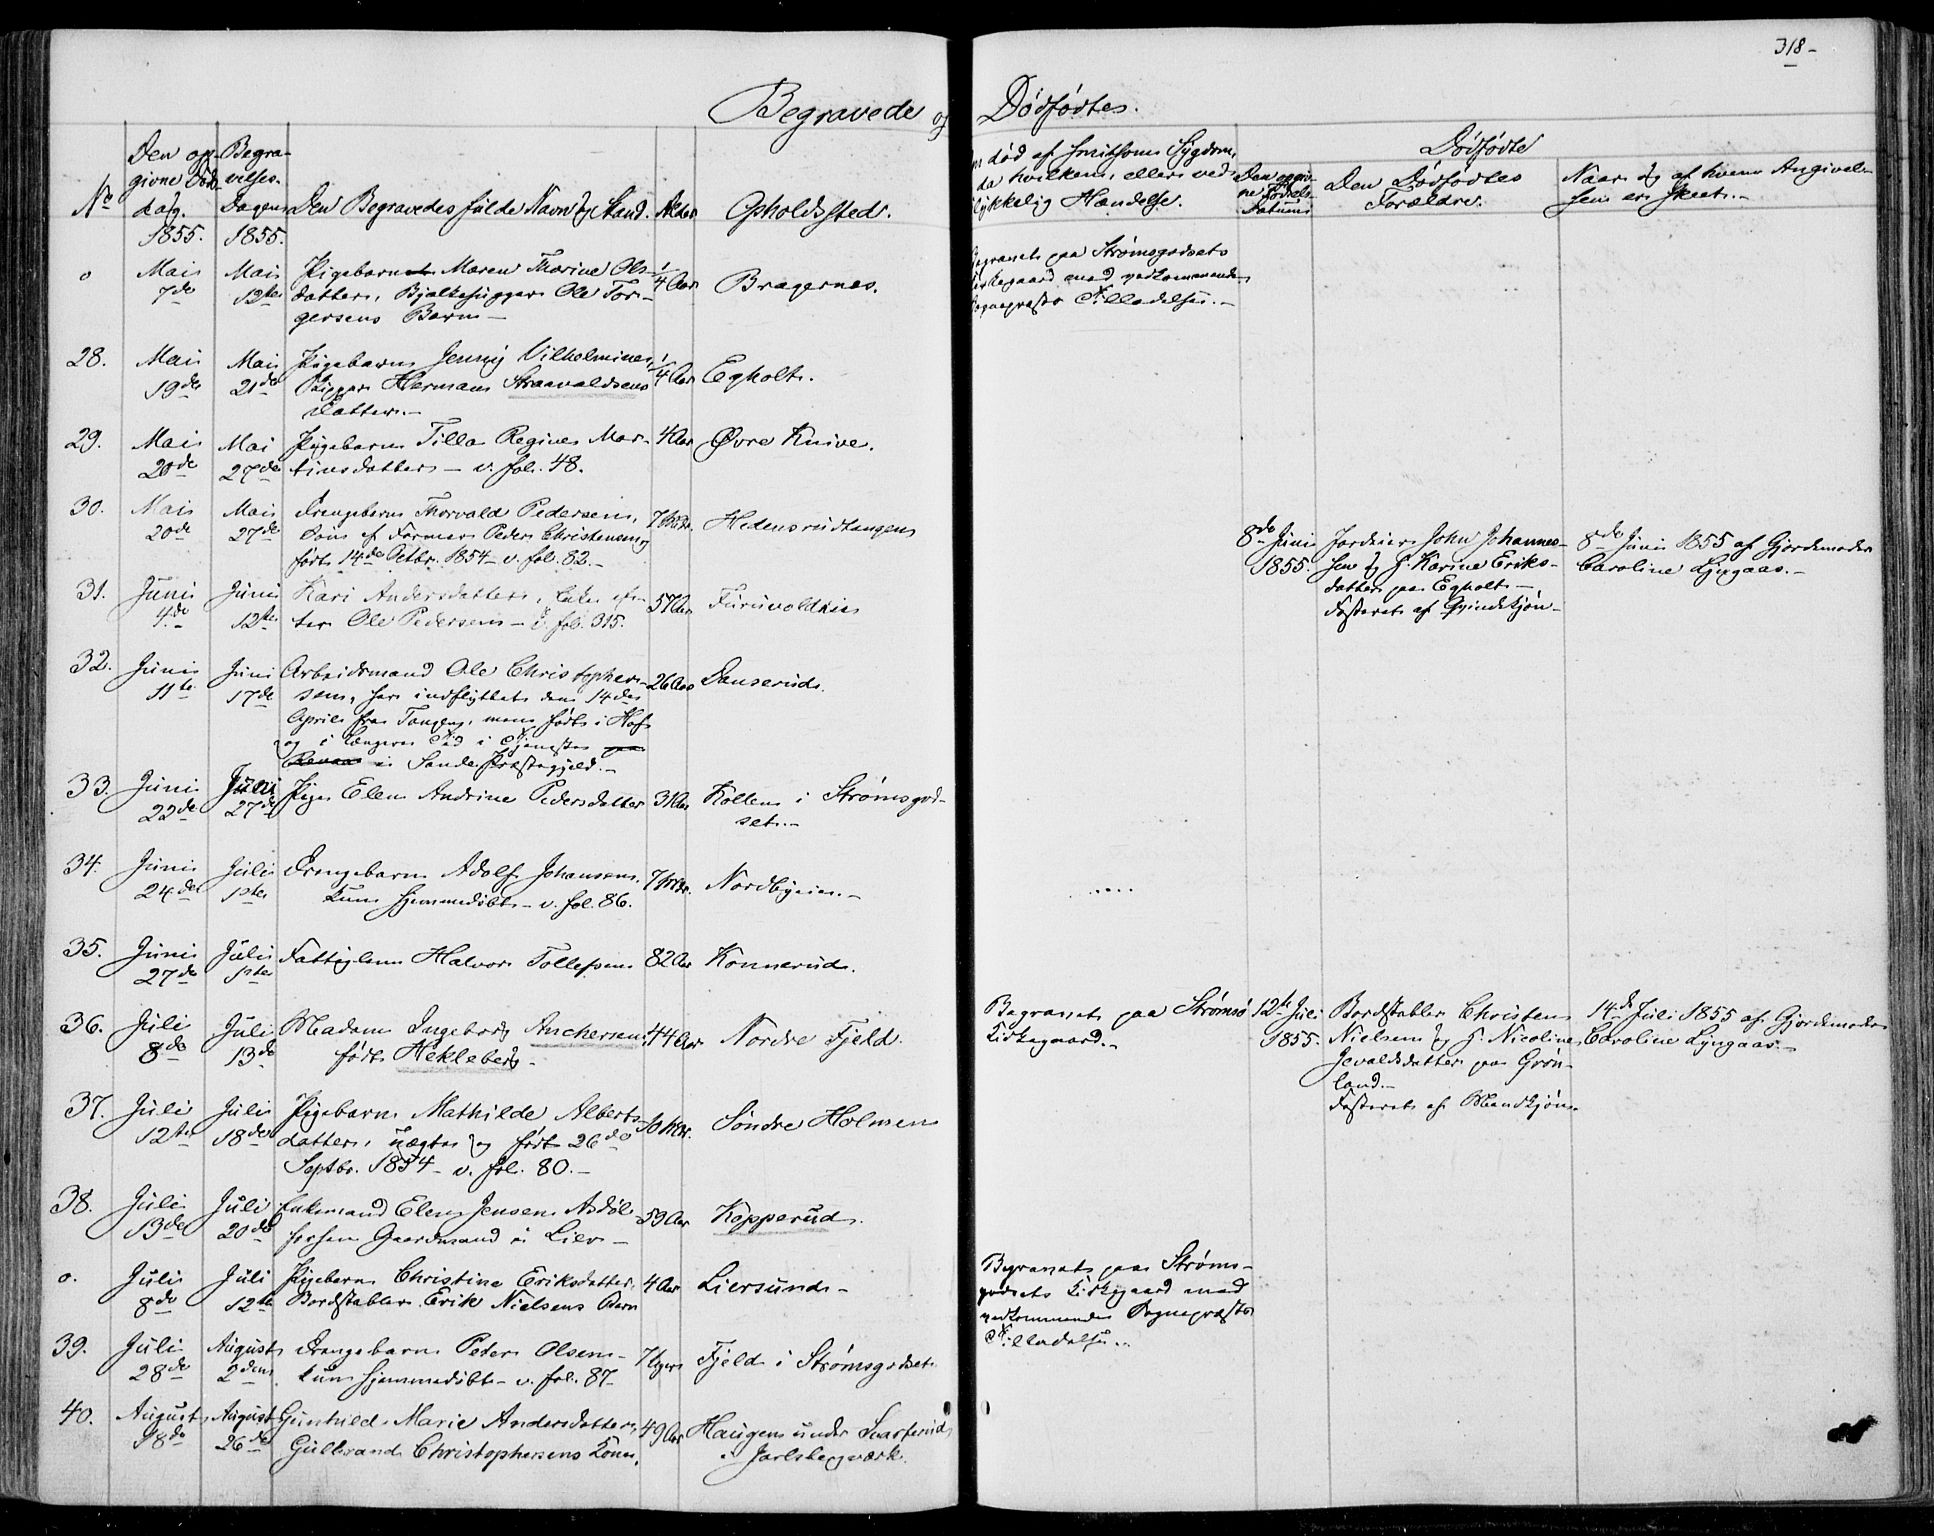 318-
Begravede og Dødfødte.
No
Den op-
givne Døds-
dag.
1855.
Begra-
velses-
Dagen
1855.
Den Begravedes fulde Navn og Stand.
Alder
Opholdssted.
død af smitsom Sygdom,
da hvilken, eller ved
lykkelig Hændelse.
Dødfødte
Den opgiv-
ne Fødsels-
Datum
Den Dødfødtes
Forældre.
Naar og af hvem Angivel-
sen er skeet.
o
Mai
7de
Mai
12te
Pigebarnet Maren Thorine Ols-
datter, Bjelkehugger Ole Tor-
gersens Barn
1/4 Aar
Bragernes.
Begravet paa Strømsgodsets
Kirkegaard med vedkommende
Sognepræsts Tilladelse.
28.
Mai
19de
Mai
21de
Pigebarn Jenny Vilhelmine,
Rigger Herman Straavaldsens
Datter.
1/4 Aar
Egholt.
29.
Mai
20de
Mai
27de
Pigebarn Tilla Regine Mar-
tinsdatter - v. fol. 48.
4 Aar
Øvre Knive.
30.
Mai
20de
Mai
27de
Drengebarn Thorvald Pedersen,
Søn af Former Peder Christensen og
født 14de Octbr. 1854 - v. fol. 82.
7 Mdr.
Hedensrudtangen
8de Juni
1855.
Jordeier John Johannes-
sen og H. Karine Eriks-
datter paa Egholt -
Fosteret af Qvindekjøn
8de Juni 1855 af Gjordemoder
Caroline Lyngaas.
31.
Juni
4de
Juni
12te
Kari Andersdatter, Enke ef-
ter Ole Pedersen - v. fol. 315.
57 Aar
Furuvoldeie
32.
Juni
11te
Juni
17de
Arbeidsmand Ole Christopher-
sen, har indflyttet den 14de
April fra Tangen, men født i Hof
og i længere Tid i Tjeneste paa
i Sande Præstegjeld.
26 Aar
Danserud.
33.
Juni
22de
Juni
27de
Pige Elen Andrine Pedersdatter
31 Aar
Kollen i Strømsgod-
set.
34.
Juni
24de
Juli
1ste
Drengebarn Adolf Johansen,
kun hjemmedøbt - v. fol. 86.
7 Mdr.
Nordbyeie.
35.
Juni
27de
Juli
1ste
Fattiglem Halvor Tollefsen
82 Aar
Konnerud.
36.
Juli
8de
Juli
13de
Madam Ingeborg Anchersen,
født Hekleberg
44 Aar
Nordre Fjeld.
Begravet paa Strømsø
Kirkegaard.
12te Juli
1855.
Bordstabler Christen
Nielsen og H. Nicoline
Jevaldsdatter paa Grøn-
land.
Fosteret af Mandkjøn.
14de Juli 1855 af Gjordemoder
Caroline Lyngaas.
37.
Juli
12te
Juli
18de
Pigebarn Mathilde Alberts-
datter, uægte og født 26de
Septbr. 1854 - v. fol. 80.
10 Mdr.
Søndre Holmen
38.
Juli
13de
Juli
20de
Enkemand Elen Jensen Asdøl
forhen Gaardmand i Lier
59 Aar
Kopperud.
o.
Juli
8de
Juli
12te
Pigebarn Christine Eriksdatter,
Bordstabler Erik Nielsens Barn
4 Aar
Liersund
Begravet paa Strøms-
godsets Kirkegaard med
vedkommende Sognepræsts
Tilladelse.
39.
Juli
28de
August
2den
Drengebarn Peder Olsen -
kun hjemmedøbt - v. fol. 87
7 Uger
Fjeld i Strømsgodset
40.
August
18de
August
26de
Gunhild Marie Andersdatter,
Gulbrand Christophersens Kone.
49 Aar
Haugen under Skarferud
i Jarlsbergværk.